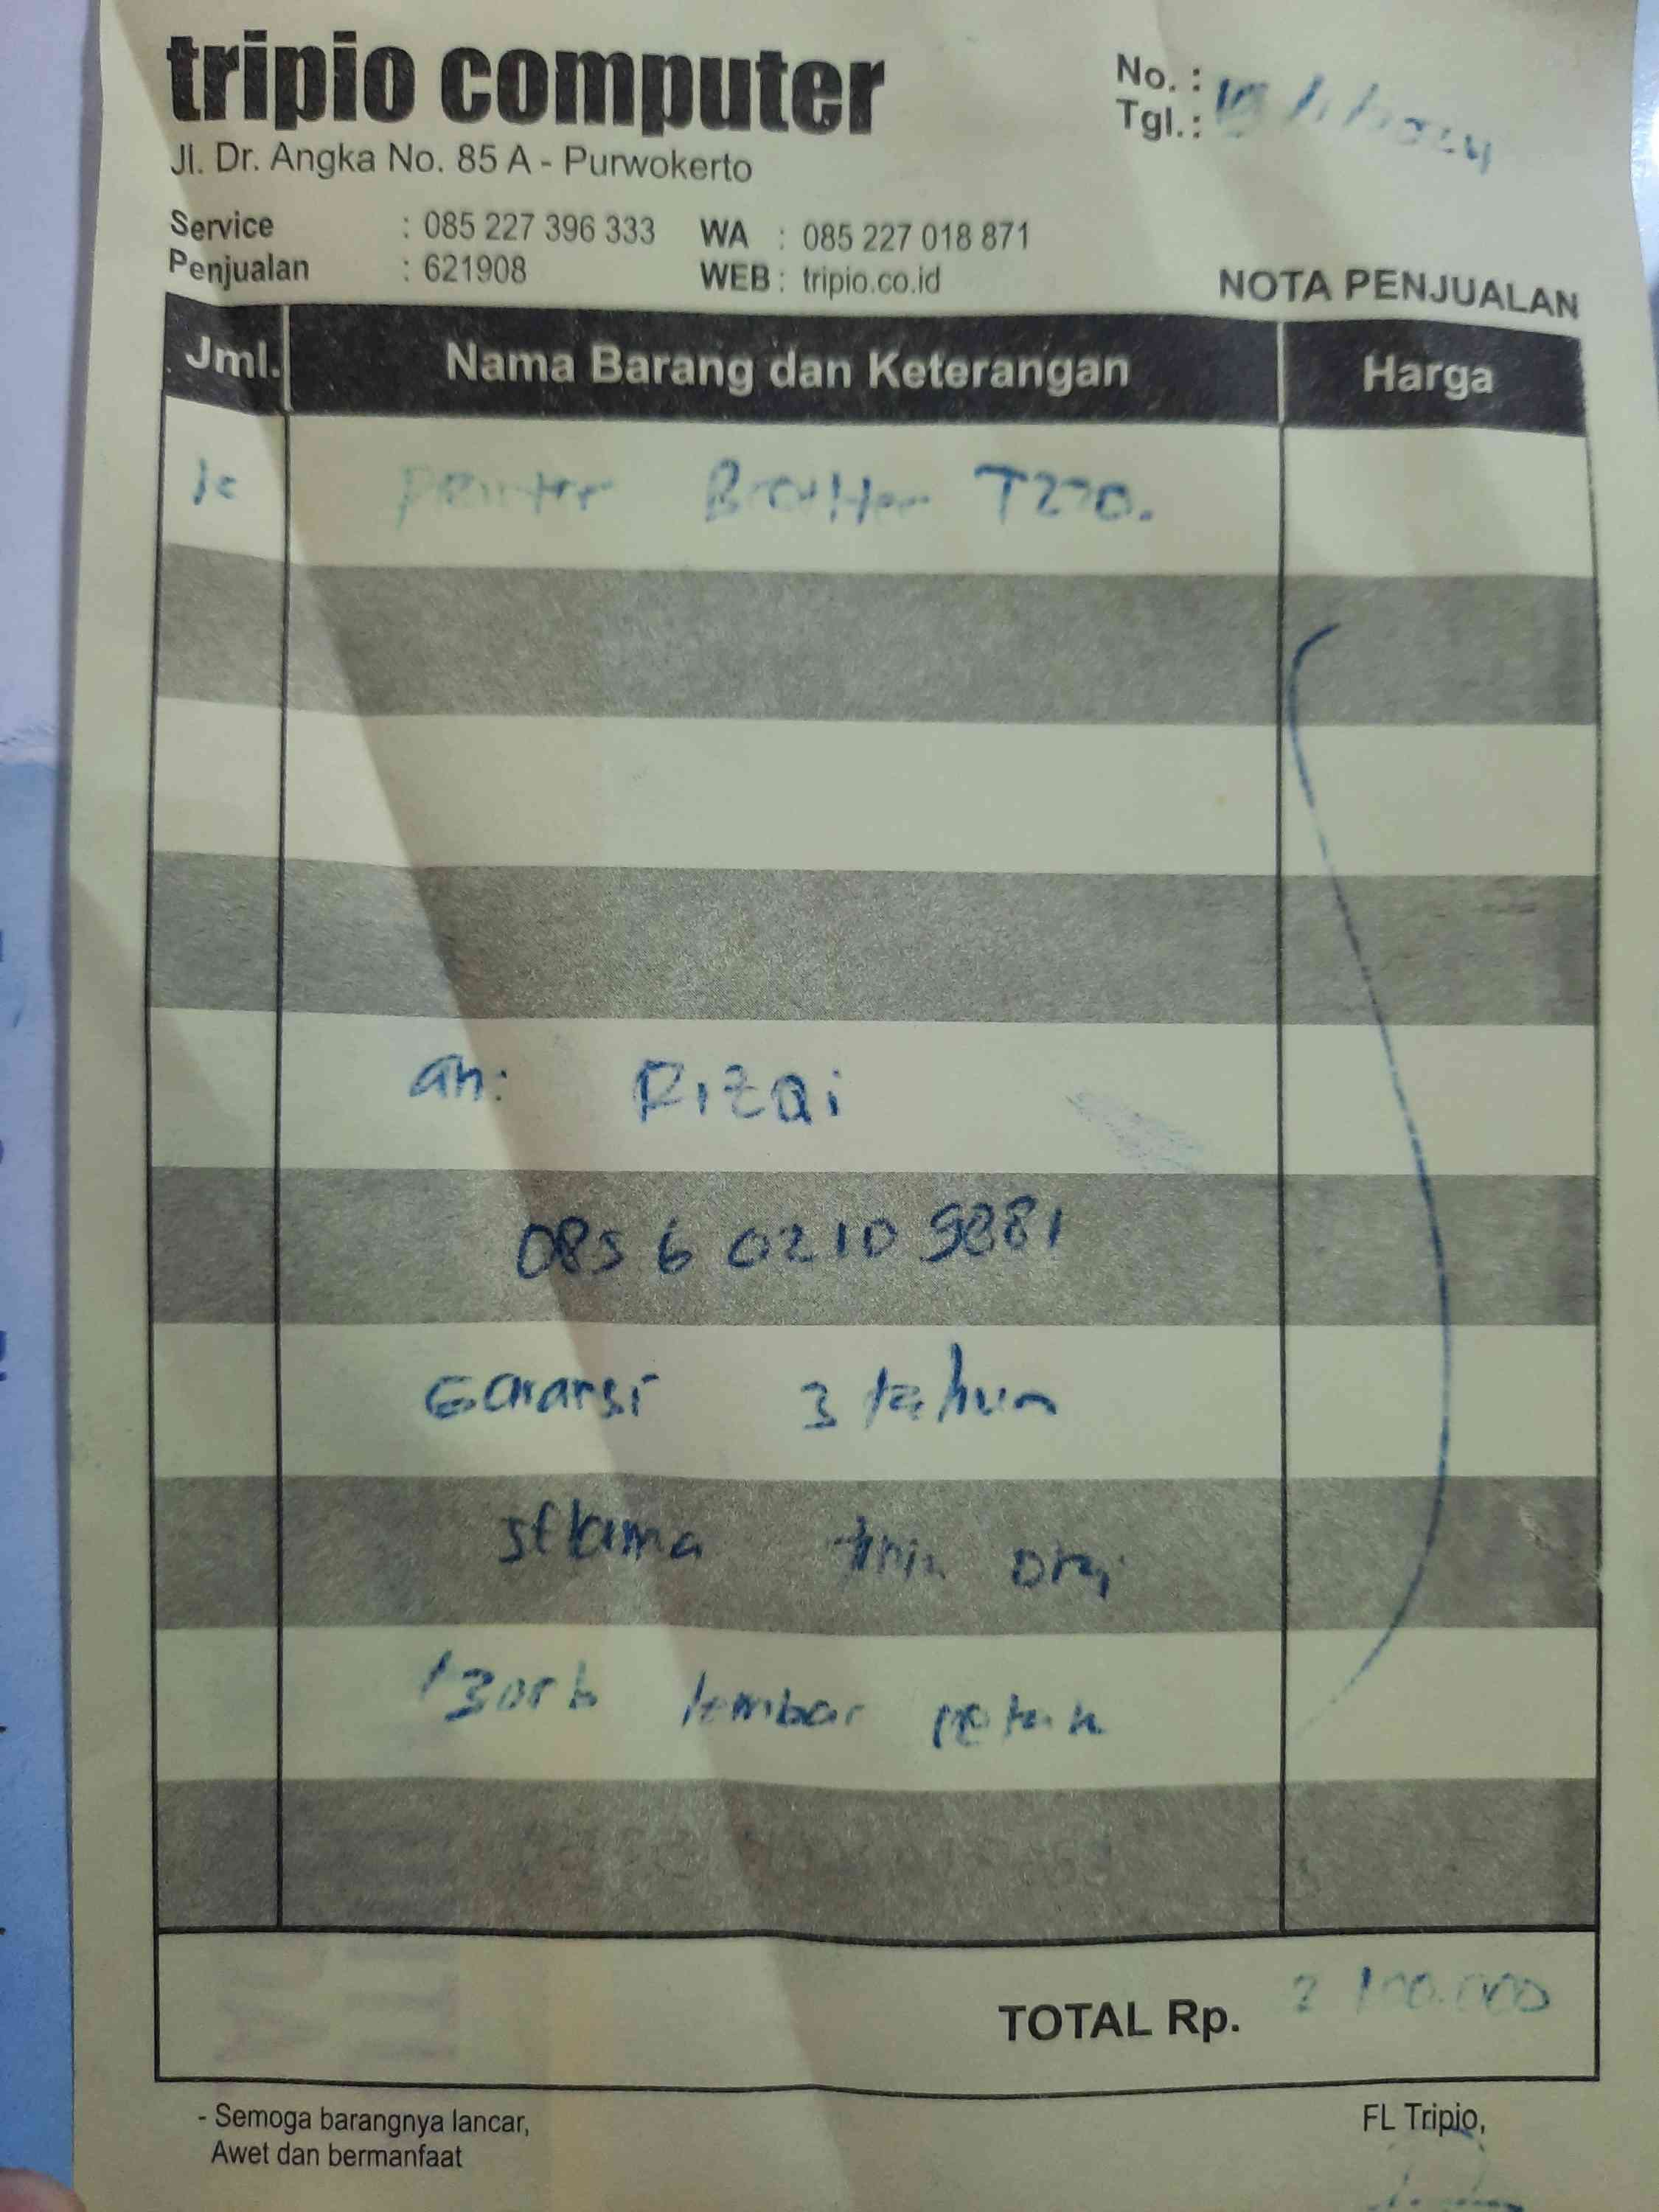 tripio computer
Jl. Dr. Angka No. 85 A - Purwokerto
No. :
Tgl. :
Service : 085 227 396 333 WA : 085 227 018 871
Penjualan : 621908 WEB : tripio.co.id
NOTA PENJUALAN
Jml. Nama Barang dan Keterangan Harga
Printer Brother T220.
an: Rizqi
085 6 0210 9881
Garansi 3 tahun
selama tinta ori
/ 30rb lembar cetak
TOTAL Rp. 2 100.000
- Semoga barangnya lancar,
Awet dan bermanfaat
FL Tripio,